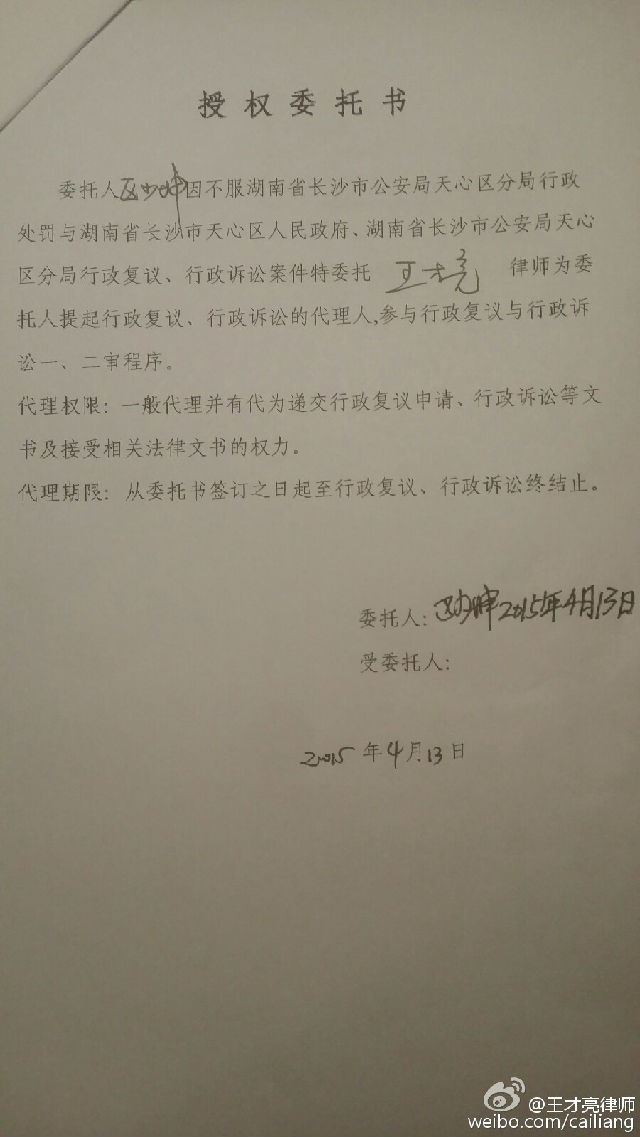 授权委托书
委托人区少坤因不服湖南省长沙市公安局天心区分局行政
处罚与湖南省长沙市天心区人民政府、湖南省长沙市公安局天心
区分局行政复议、行政诉讼案件特委托 王才亮 律师为委
托人提起行政复议、行政诉讼的代理人,参与行政复议与行政诉
讼一、二审程序。
代理权限:一般代理并有代为递交行政复议申请、行政诉讼等文
书及接受相关法律文书的权力。
代理期限:从委托书签订之日起至行政复议、行政诉讼终结止。
委托人:区少坤2015年4月13日
受委托人:
2015年4月13日
@王才亮律师
weibo.com/cailiang